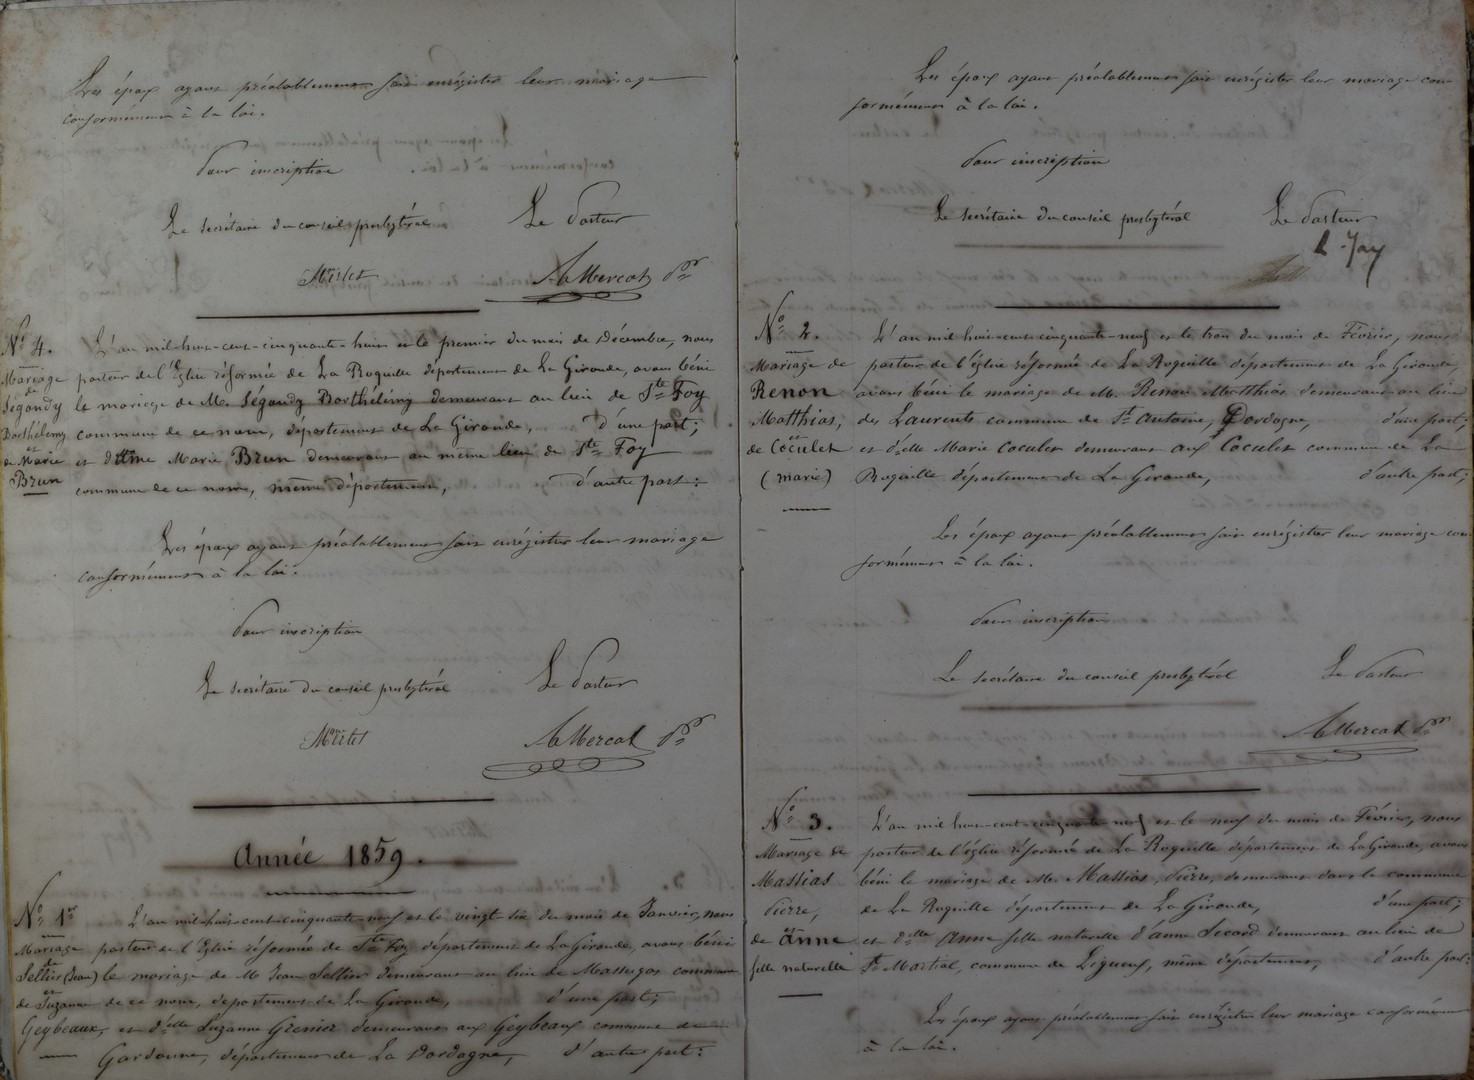 Les époux ayant préalablement fait enrégistrer leur mariage
conformément à la loi.
Pour inscription
Le secrétaire du conseil presbytéral Le Pasteur
Merlet A Mercat Pr
N° 4. L'an mil-huit-cent-cinquante-huit et le premier du mois de Décembre, nous
Mariage pasteur de l'Eglise réformée de La Roquille département de La Gironde, avons béni
de
Ségondy le mariage de M. Ségondy Barthélémy demeurant au lieu de Ste Foy
Barthélemy commune de ce nom, département de La Gironde, d'une part;
et
de Marie et dame Marie Brun demeurant au même lieu de Ste Foy
Brun commune de ce nom, même département, d'autre part:
Les époux ayant préalablement fait enrégistrer leur mariage
conformément à la loi.
Pour inscription
Le secrétaire du conseil presbytéral Le Pasteur
Merlet A Mercat Pr
Année 1859.
N° 1er L'an mil-huit-cent-cinquante-neuf et le vingt six du mois de Janvier, nous
Mariage pasteur de l'Eglise réformée de Ste Foy département de La Gironde, avons béni
de
Sellier (Jean) le mariage de M. Jean Sellier demeurant au lieu de Massugas commune
et
de Suzanne de ce nom, département de La Gironde, d'une part;
Geybeaux, et delle Suzanne Grenier demeurant aux Geybeaux commune de
Gardonne, département de La Dordogne, d'autre part:
Les époux ayant préalablement fait enrégistrer leur mariage con
formément à la loi.
Pour inscription
Le secrétaire du conseil presbytéral Le Pasteur
N° 2. L'an mil huit-cent-cinquante-neuf et le trois du mois de Février, nous
Mariage de pasteur de l'église réformée de La Roquille département de La Gironde,
Renon avons béni le mariage de M. Renon Matthias demeurant au lieu
Matthias, des Laurents commune de St Antoine, Dordogne, d'une part;
et
de Coculet et delle Marie Coculet demeurant aux Coculet commune de La
(marie) Roquille département de La Gironde, d'autre part;
Les époux ayant préalablement fait enrégistrer leur mariage con
formément à la loi.
Pour inscription
Le secrétaire du conseil presbytéral Le Pasteur
A Mercat Pr
N° 3. L'an mil huit-cent-cinquante neuf et le neuf du mois de Février, nous
Mariage de pasteur de l'église réformée de La Roquille département de La Gironde, avons
Massias béni le mariage de M. Massias, Pierre, demeurant dans la commune
Pierre, de La Roquille département de La Gironde, d'une part;
et
de Anne et delle Anne fille naturelle d'anne Secard demeurant au lieu de
fille naturelle St Martial, commune de Ligueux, même département, d'autre part:
Les époux ayant préalablement fait enrégistrer leur mariage conformément
à la loi.